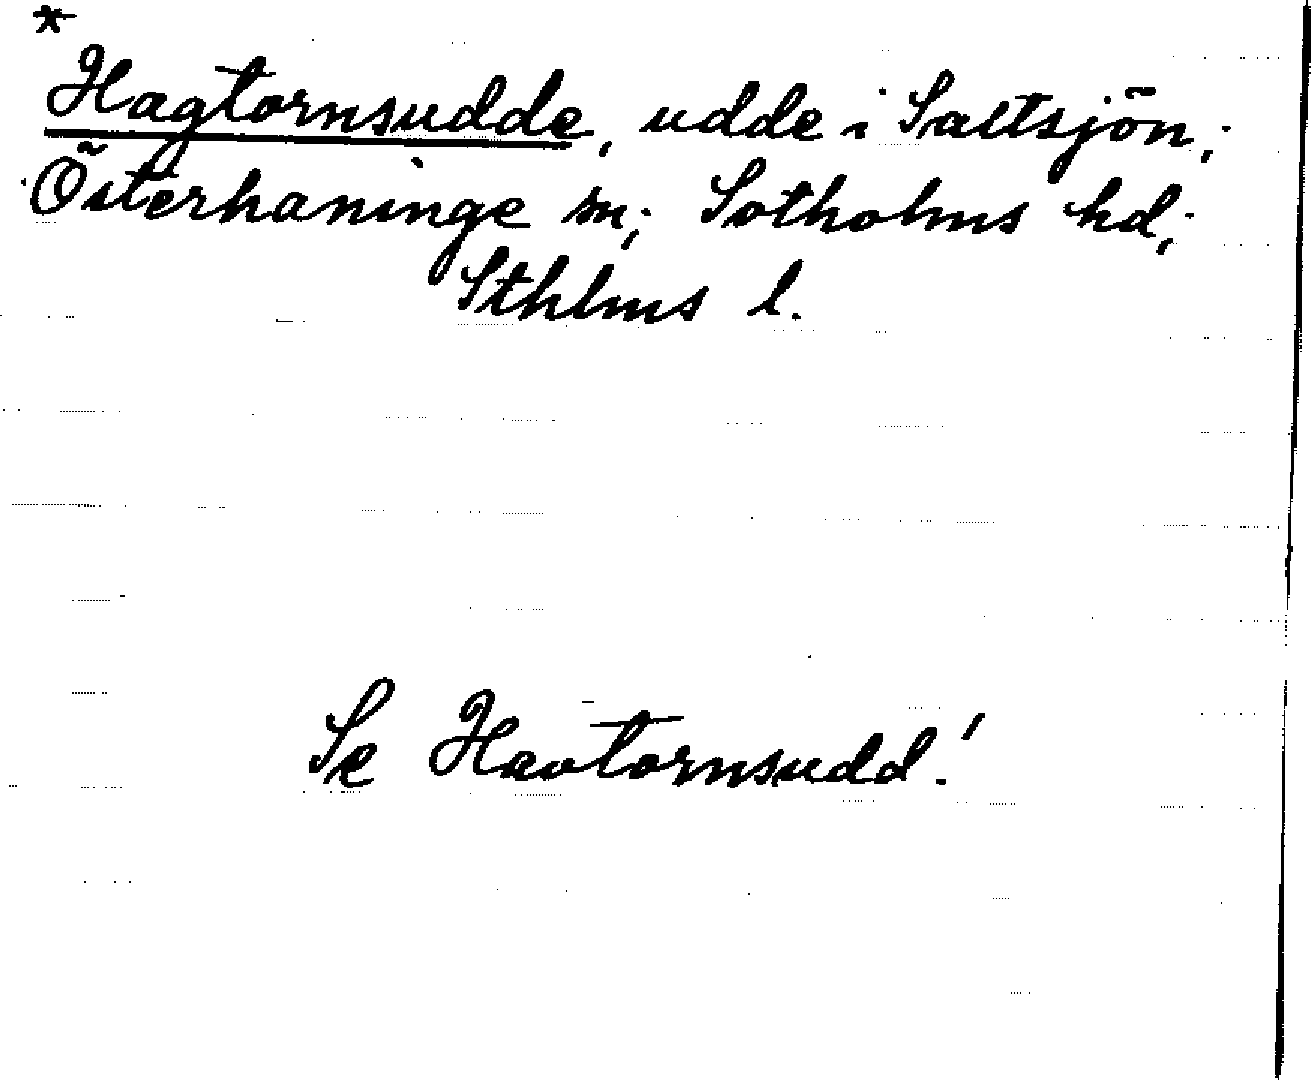 *
Hagtornsudde, udde i Saltsjön,
Österhaninge sn, Sotholms hd,
Sthlms l.
Se Havtornsudd!